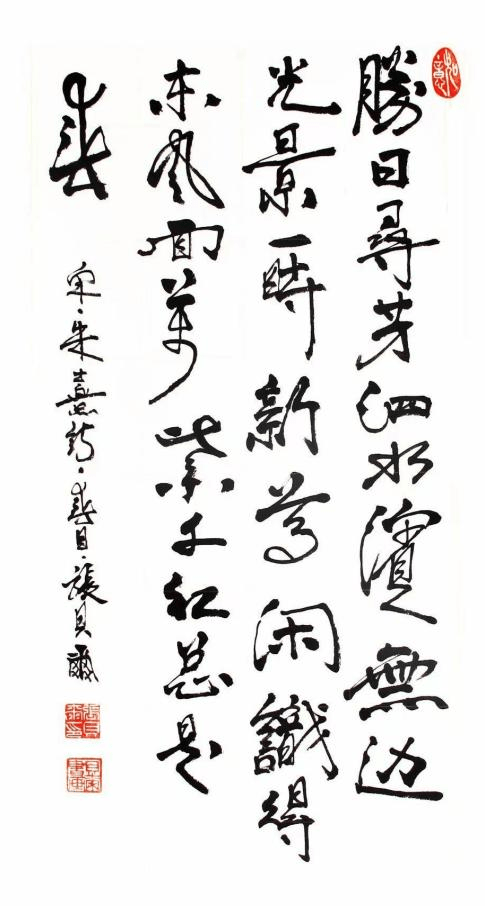 勝日尋芳泗水濱無边
光景一時新等闲識得
东風面萬紫千红总是
春
宋·朱熹詩·春日·張貝爾